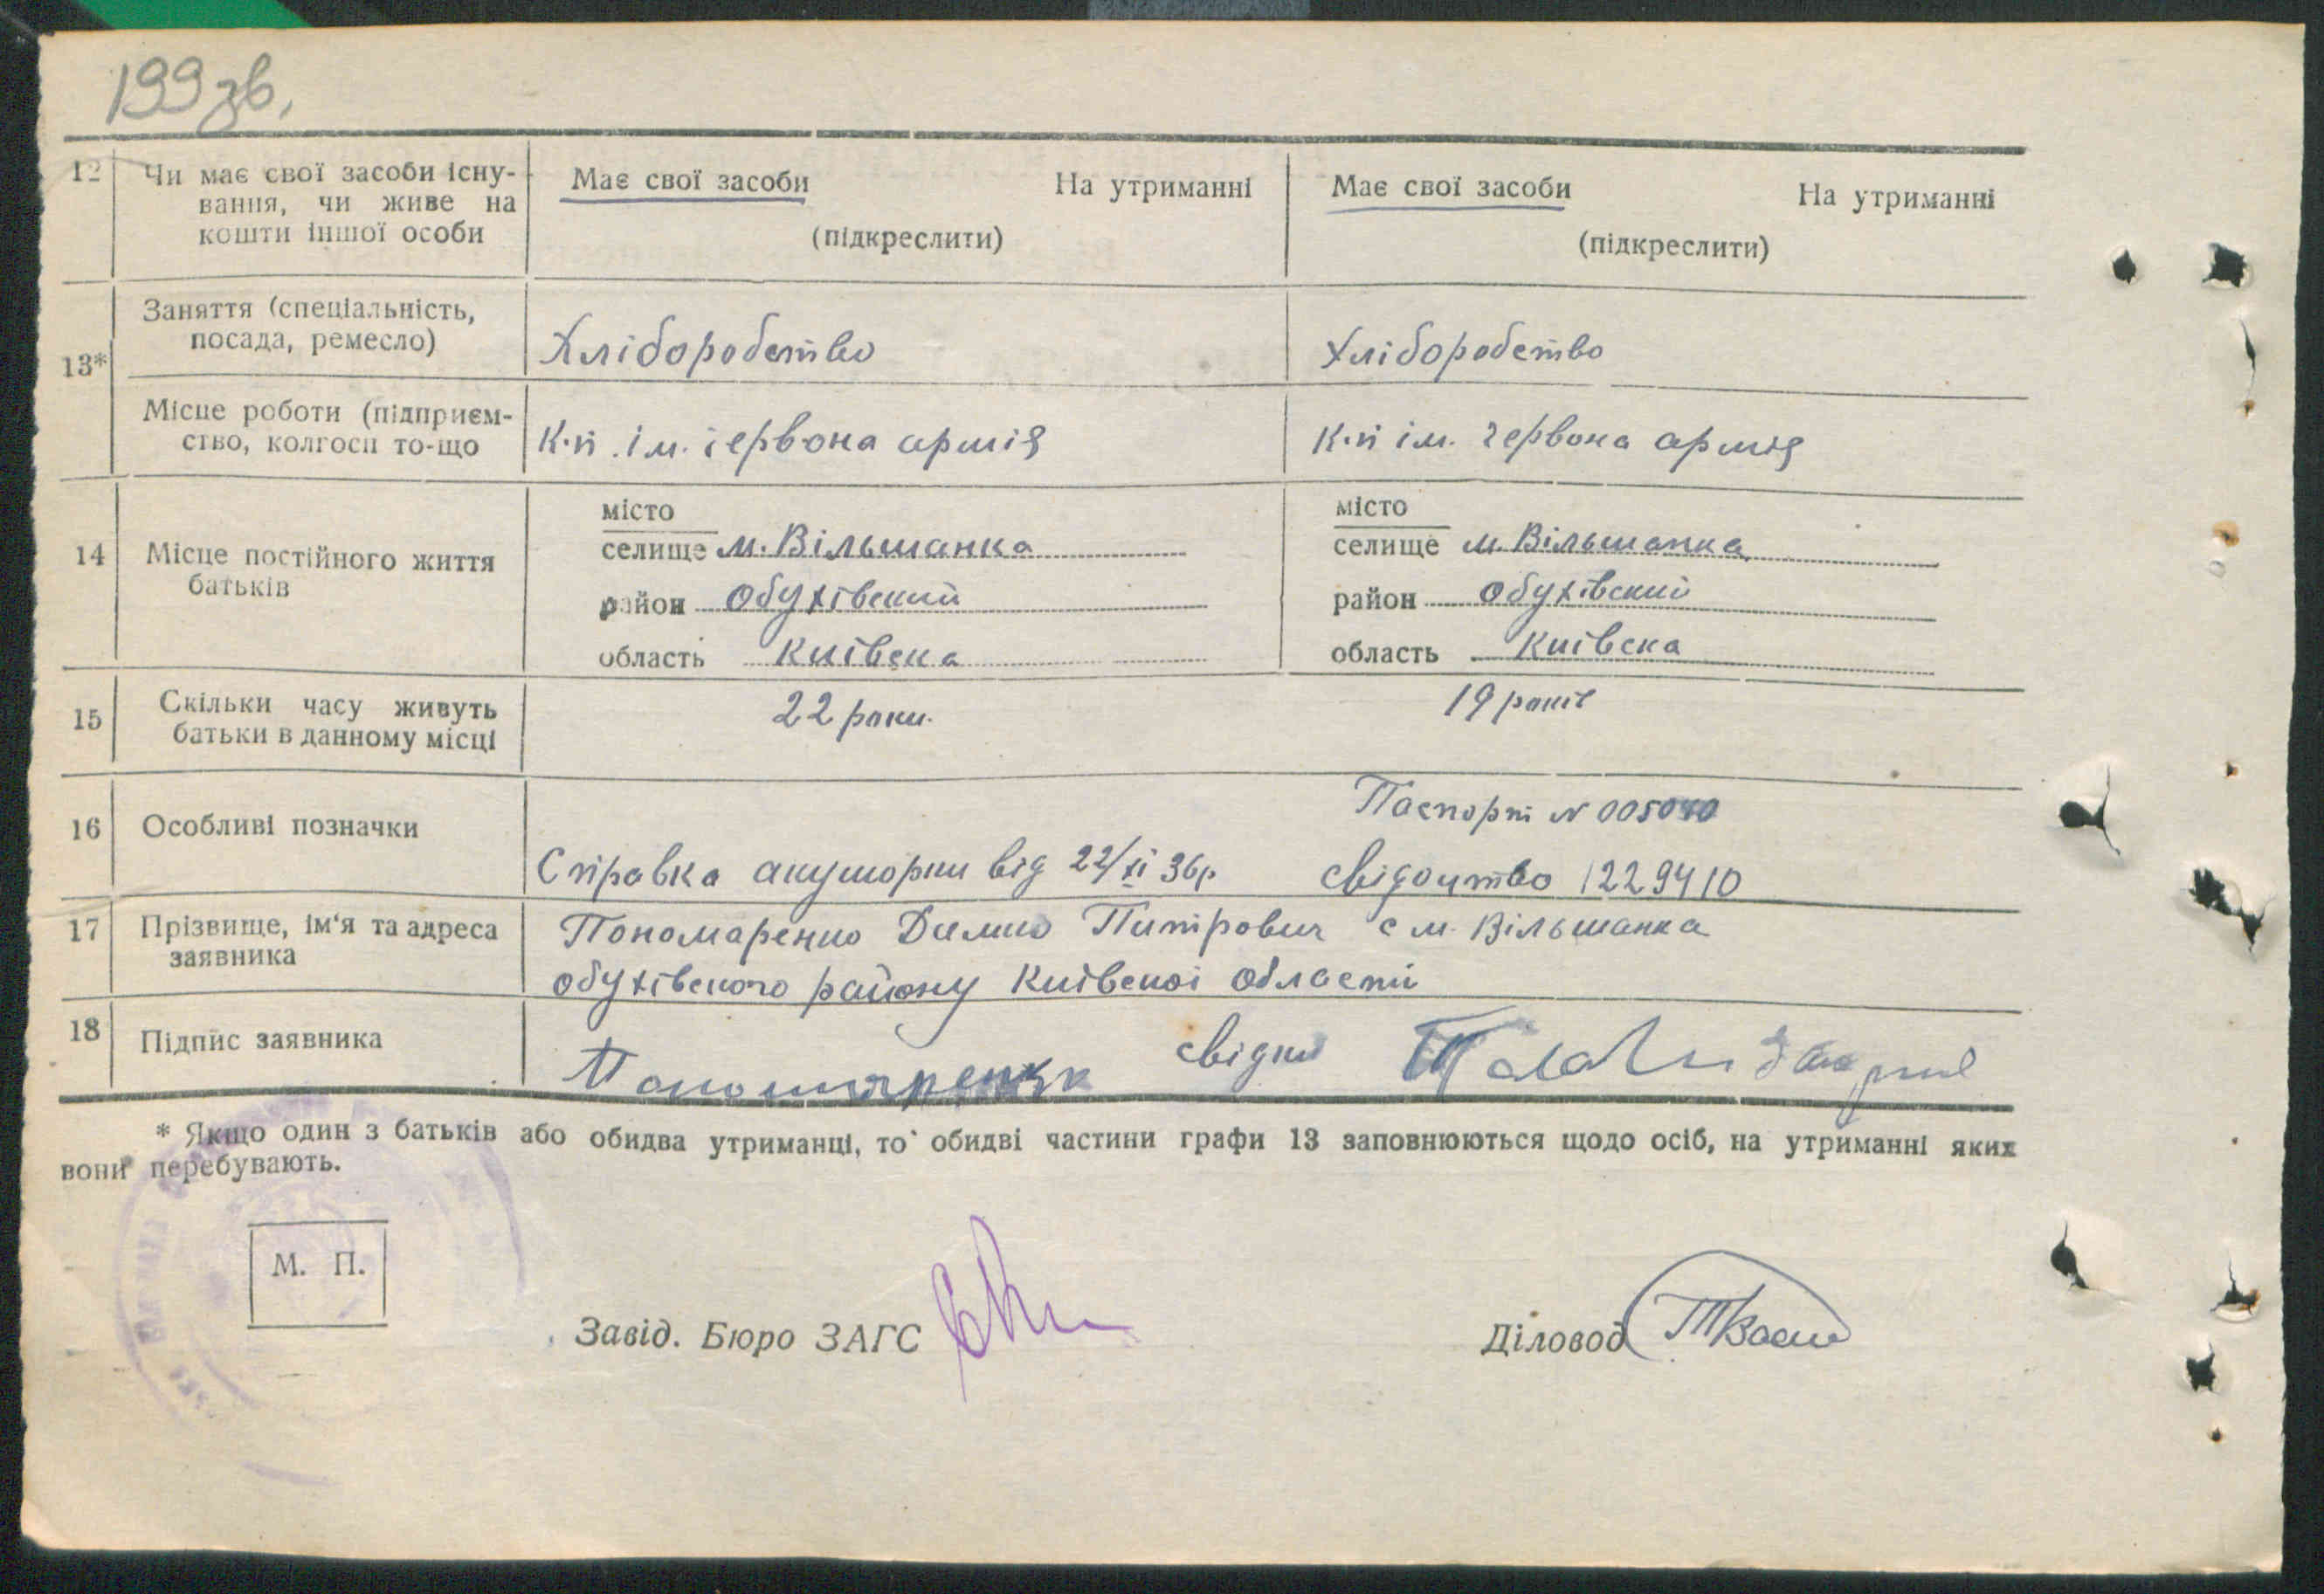 199 зв.
12 Чи має свої засоби існу-
вання, чи живе на
кошти іншої особи
Має свої засоби На утриманні
(підкреслити)
Має свої засоби На утриманні
(підкреслити)
13*
Заняття (спеціальність,
посада, ремесло)
Хліборобство
Хліборобство
Місце роботи (підприєм-
ство, колгосп то-що
к-п ім. червона армія
к-п ім. червона армія
14 Місце постійного життя
батьків
місто
селище м. Вільшанка
район Обухівский
область Київска
місто
селище м. Вільшанка
район Обухівский
область Київска
15 Скільки часу живуть
батьки в данному місці
22 роки.
19 років
16 Особливі позначки
Паспорт N 005040
Справка акушорки від 22/XI 36р. свідоцтво 1229410
17 Прізвище, ім‘я та адреса
заявника
Пономаренко Питрович с м. Вільшанка
обухівского району Київскоі области
18 Підпис заявника
Пономаренко свідки
* Якщо один з батьків або обидва утриманці, то обидві частини графи 13 заповнюються щодо осіб, на утриманні яких
вони перебувають.
М. П.
Завід. Бюро ЗАГС
Діловод